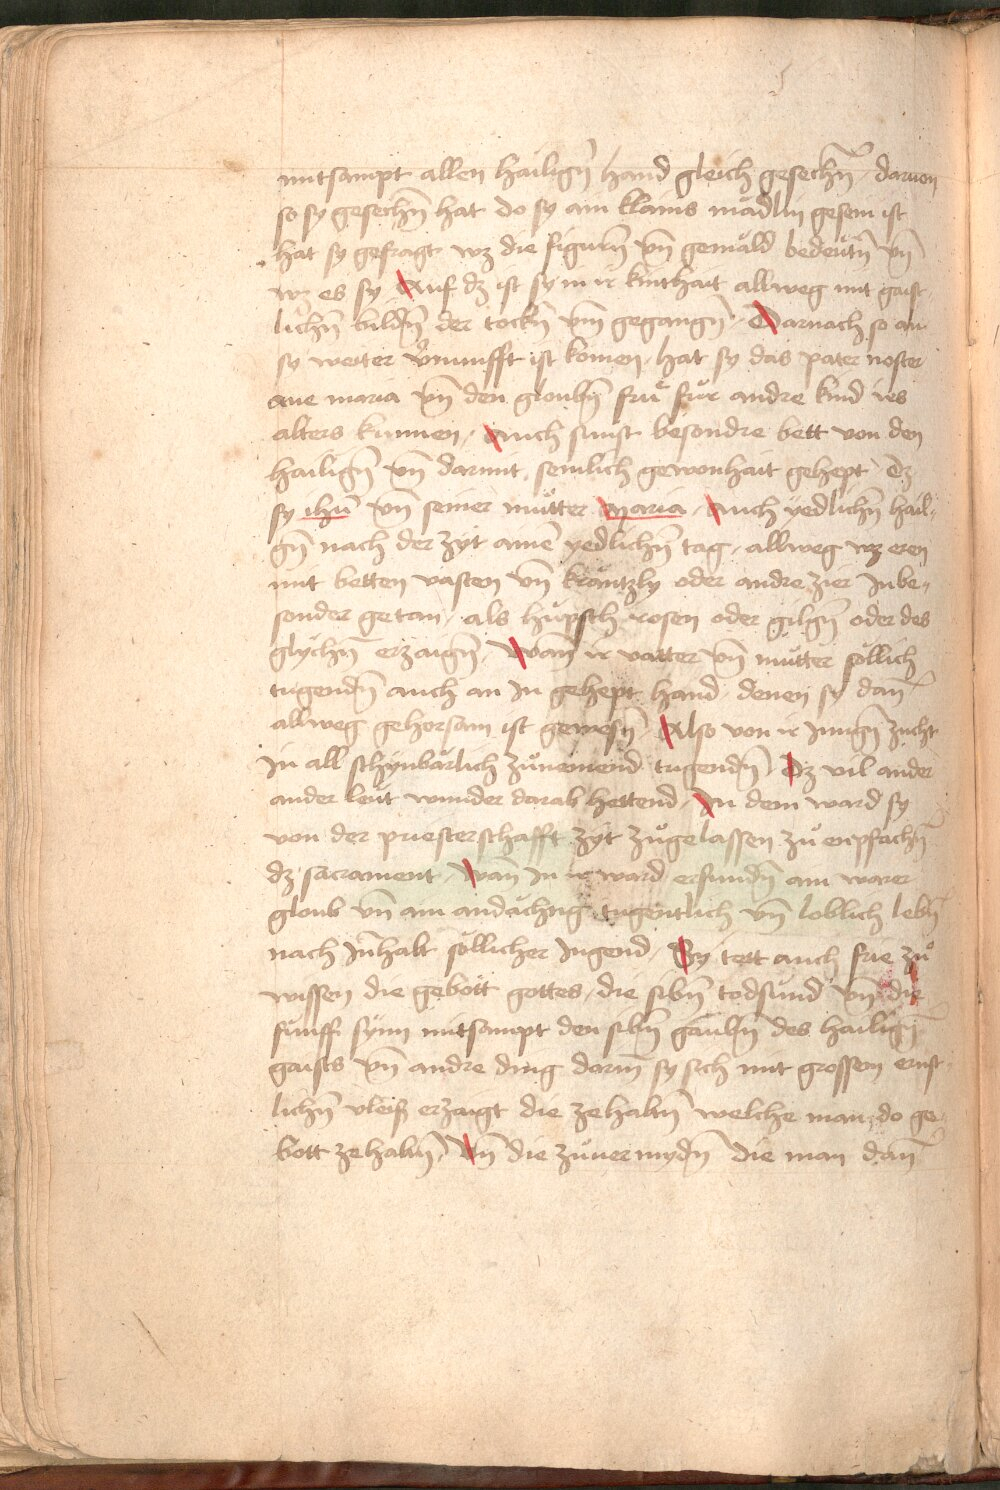 mitsampt allen hailign̄ hand gleich gesechn̄ / daruon
so sy gesechn̄ hat do sy ain klains mådlin gesein ist
hat sy gefragt wz die figurn̄ vn̄ gemåld bedeu̇tn̄ vn̄
wz es sy Auf dz ist sy in ir kinthait allweg mit gaist
lichn̄ bildn̄ der tockn̄ vm̄ gegangn̄ / Darnach so an
sy weiter v̊nunfft ist komen / hat sy das pater noster
aue maria vn̄ den gloubn̄ frů fůr andre kind irs
alters kunnen / Auch sunst besondre bett von den
hailign̄ vn̄ darmit semlich gewonhait gehept / Dz
sy ihū vn̄ seiner můtter Maria / Auch yedlichn̄ hail-
gn̄ nach der zyt aine yedlichn̄ tag / allweg wz eren
mit betten vasten vn̄ kråntzly oder andre zier In be-
sonder getan / als hůpsch rosen oder gilgn̄ oder des
glychn̄ erzaign̄ / Wan̄ ir vatter vn̄ můtter söllich
tugendn̄ auch an In gehept hand / denen sy dan̄
allweg gehorsam ist gewesn̄ / Also von ir Jungn̄ zucht
In all schynbårlich zůnemend tugendn̄ / Dz vil ander
ander leůt wunder darab hettend / In dem ward sy
von der priesterschafft zyt zůgelassen zů enpfachn̄
dz sacrament / Wan̄ In ir ward erfundn̄ ain warer
gloub vn̄ ain andåchtig tugentlich vn̄ loblich lebn̄
nach Inhalt söllicher Jugend / Sy tett auch frie zů
wissen die gebött gottes / die sibn̄ todsůnd vn̄ die
fůnff synn mitsampt den sibn̄ gaubn̄ des hailign̄
gaists vn̄ andre ding darin̄ sy sich mit grossem ernst
lichn̄ vleiß erzaigt die zehaltn̄ welche man do ge-
bott zehaltn̄ / Vn̄ die zůuermydn̄ die man dan̄